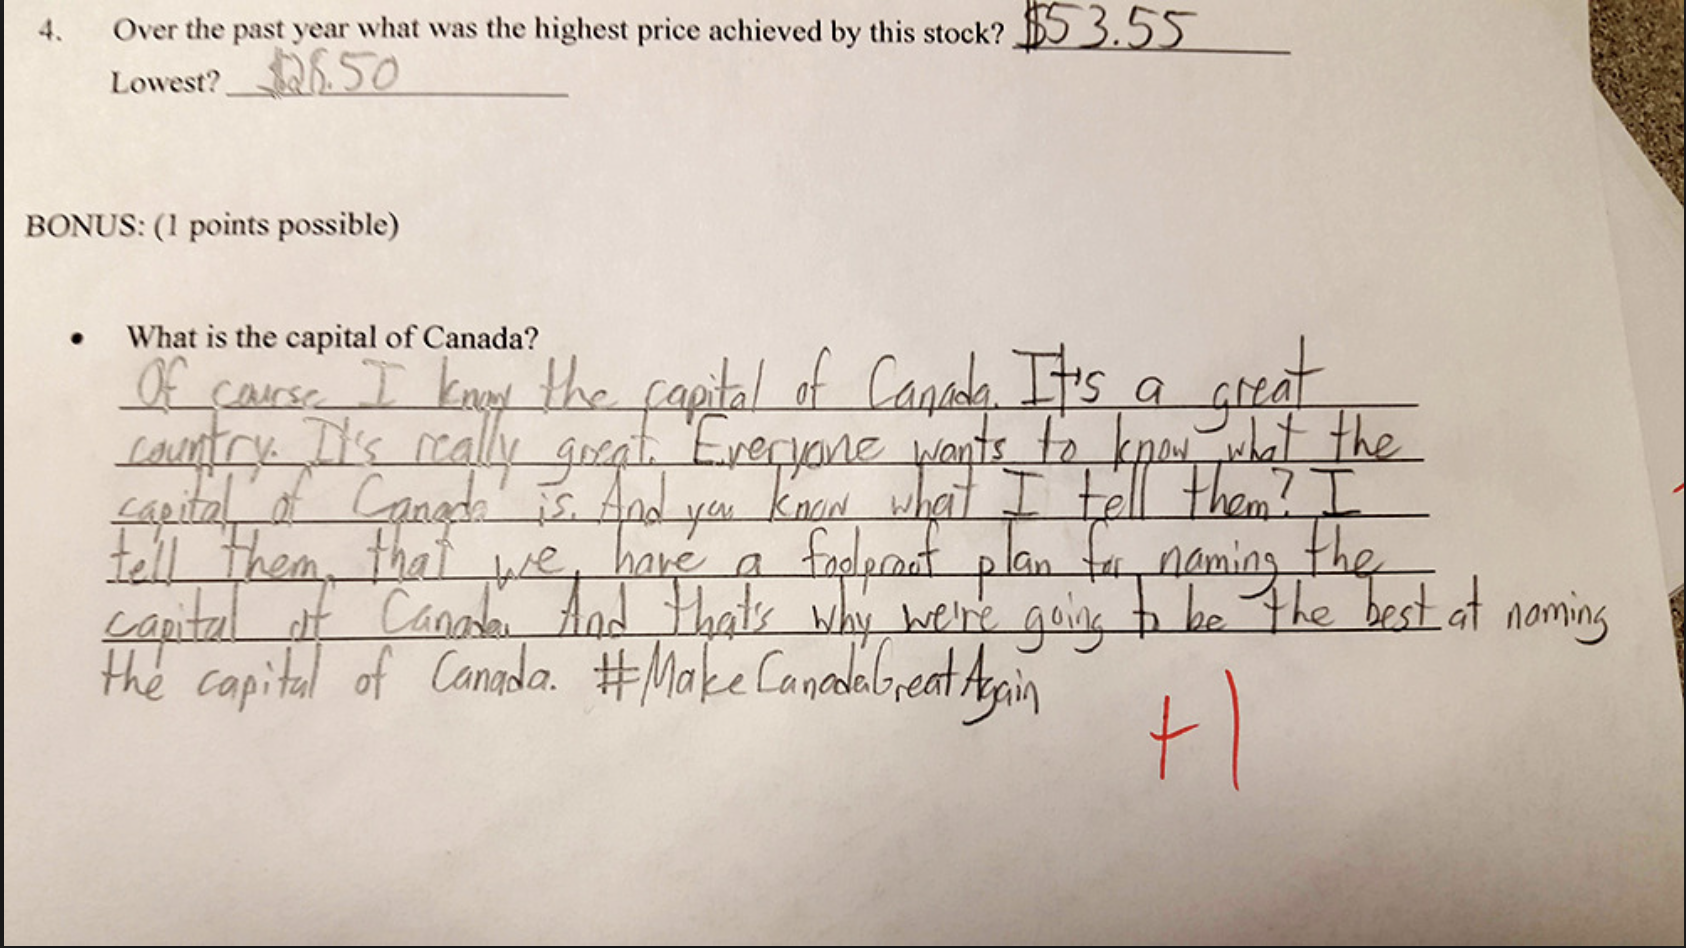 4. Over the past year what was the highest price achieved by this stock? $53.55
Lowest? $26.50
BONUS: (1 points possible)
• What is the capital of Canada?
Of course I know the capital of Canada. It's a great
country. It's really great. Everyone wants to know what the
capital of Canada is. And you know what I tell them? I
tell them, that we, have a foolproof plan for naming the
capital of Canada. And that's why we're going to be the best at naming
the capital of Canada. #MakeCanadaGreatAgain
+1